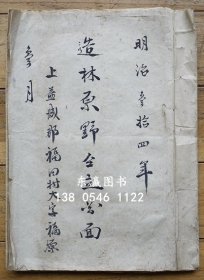 明治壱拾四年
造林原野全図面
上益城郡福田村大字福原
壱月
东瀛图书
138 0546 1122